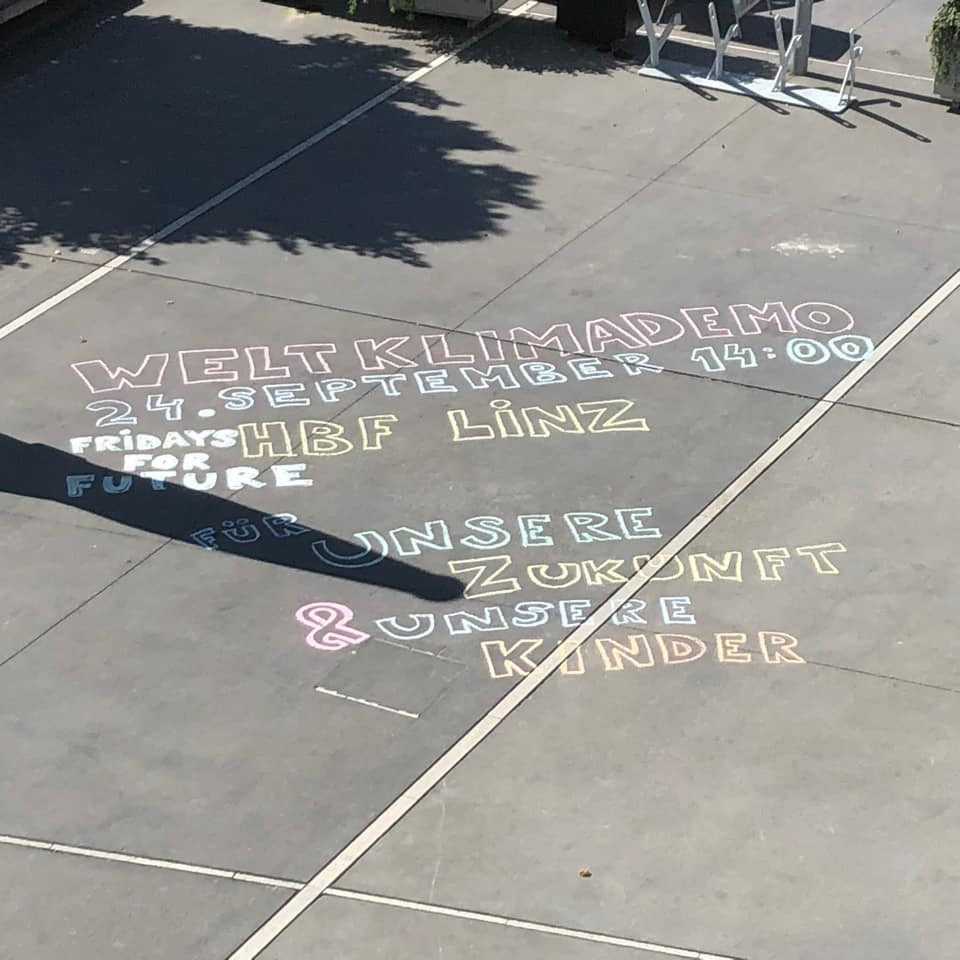 WELTKLIMADEMO
24. SEPTEMBER 14:00
HBF LiNZ
FRiDAYS
FOR
FUTURE
FÜR UNSERE
ZUKUNFT
& UNSERE
KiNDER